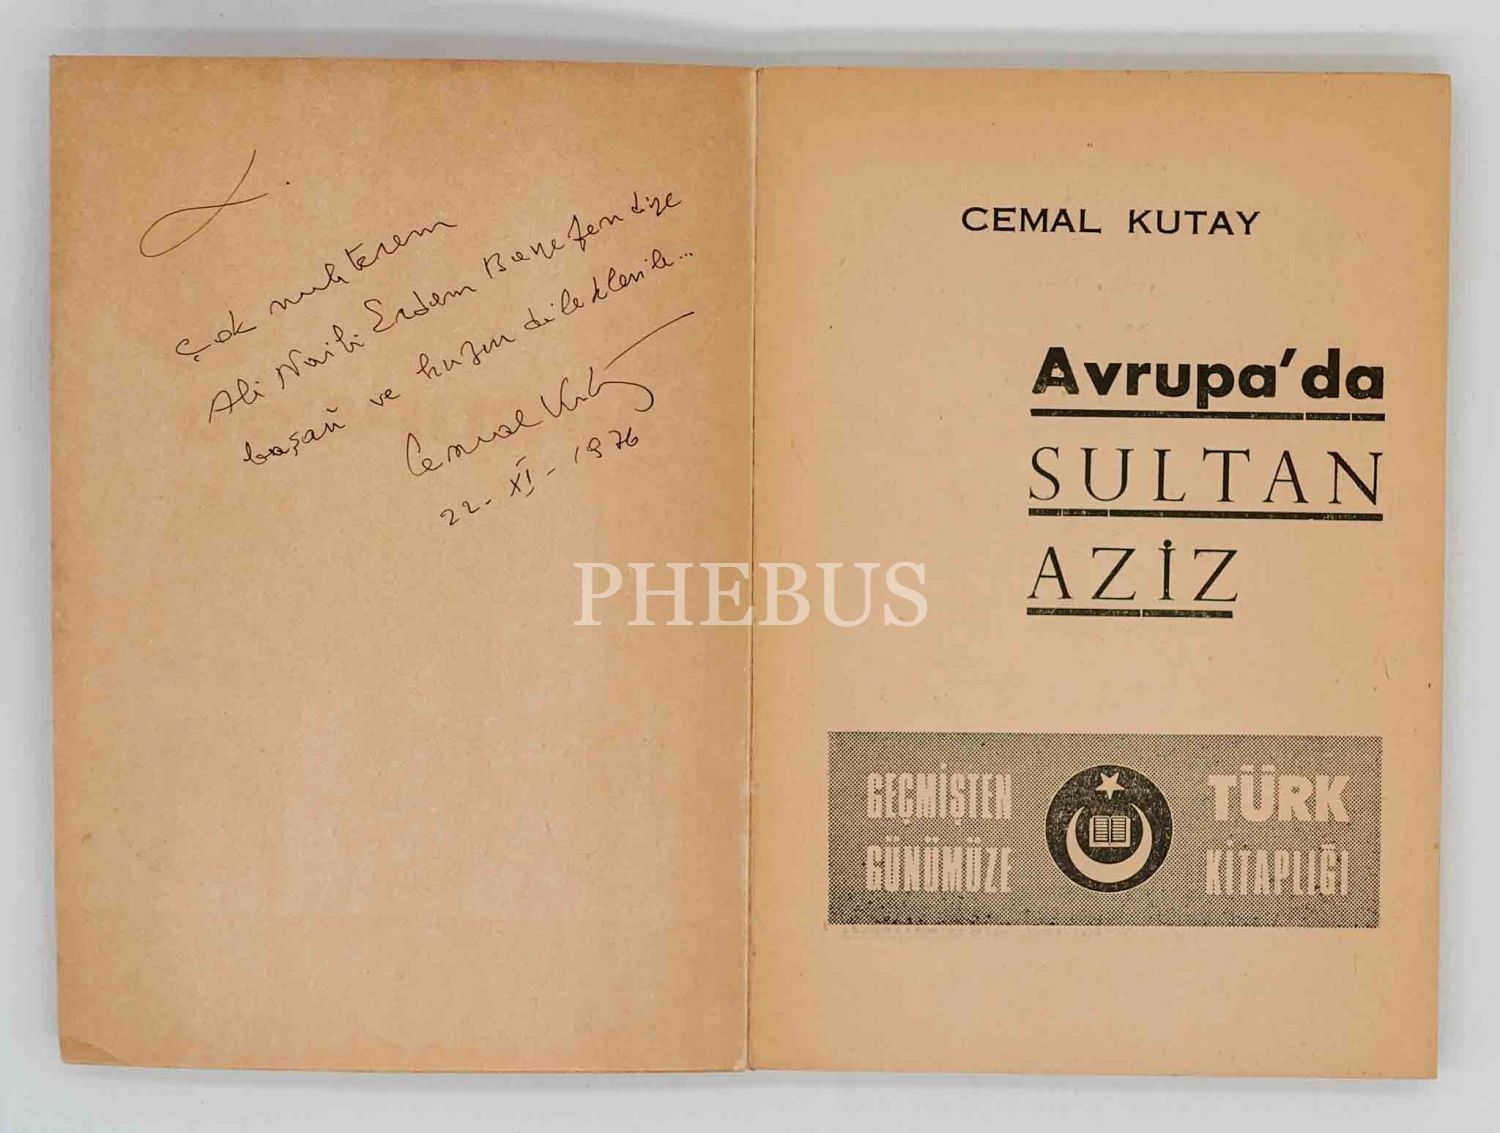 Çok muhterem
Ali Naili Erdem Beyefendiye
başarı ve huzur dileklerile...
Cemal Kutay
22-XI-1976
CEMAL KUTAY
Avrupa'da
SULTAN
AZİZ
GEÇMİŞTEN
GÜNÜMÜZE
TÜRK
KİTAPLIĞI
PHEBUS